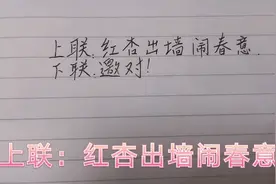 上联.红杏出墙闹春意.
下联.邀对!
上联：红杏出墙闹春意